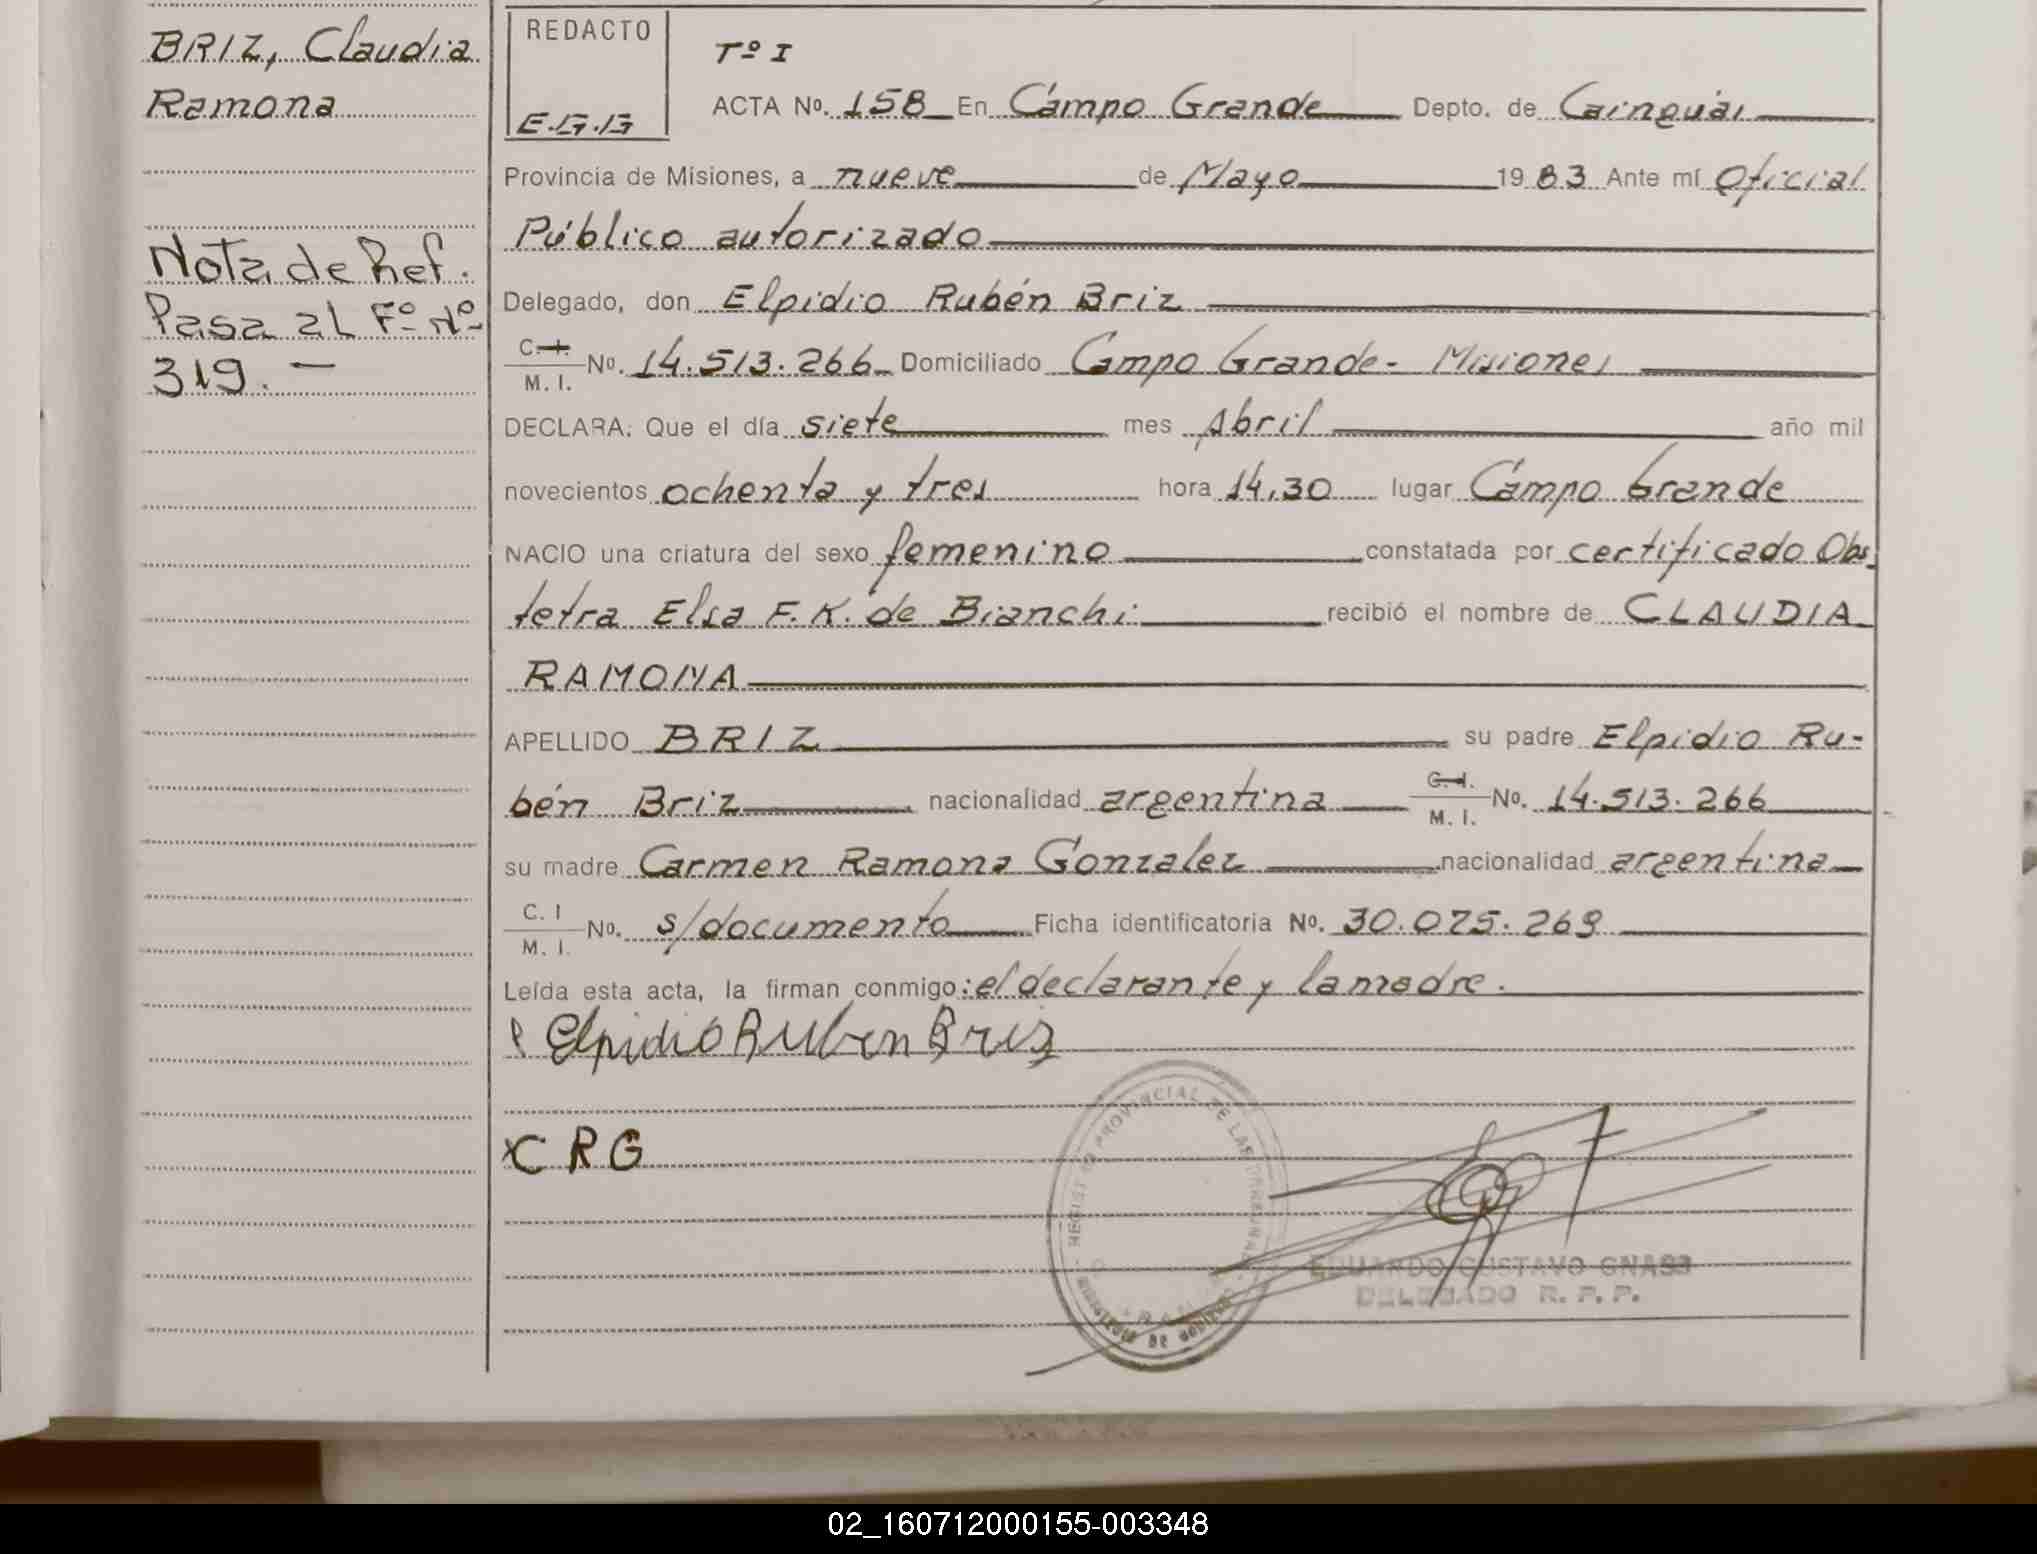 BRIZ, Claudia
Ramona
Nota de Ref.
Pasa al Fº Nº
319. —
REDACTO
E.G.G
Tº I
ACTA Nº. 158 En Campo Grande Depto. de Cainguás
Provincia de Misiones, a nueve de Mayo 1983 Ante mí Oficial
Público autorizado
Delegado, don Elpidio Rubén Briz
C. I.
M. I. Nº. 14.513.266 Domiciliado Campo Grande - Misiones
DECLARA: Que el día siete mes Abril año mil
novecientos ochenta y tres hora 14,30 lugar Campo Grande
NACIO una criatura del sexo femenino constatada por certificado Obs
tetra Elsa F. K. de Bianchi recibió el nombre de CLAUDIA
RAMONA
APELLIDO BRIZ su padre Elpidio Ru-
bén Briz nacionalidad argentina C. I.
M. I. Nº. 14.513.266
su madre Carmen Ramona Gonzalez nacionalidad argentina
C. I
M. I. Nº. s/documento Ficha identificatoria Nº. 30.075.269
Leída esta acta, la firman conmigo: el declarante y la madre.
Elpidio Ruben Bris
x C R G
REGISTRO PROVINCIAL DE LAS PERSONAS
MINISTERIO DE GOBIERNO
EDUARDO GUSTAVO GNASS
DELEGADO R. P. P.
02_160712000155-003348